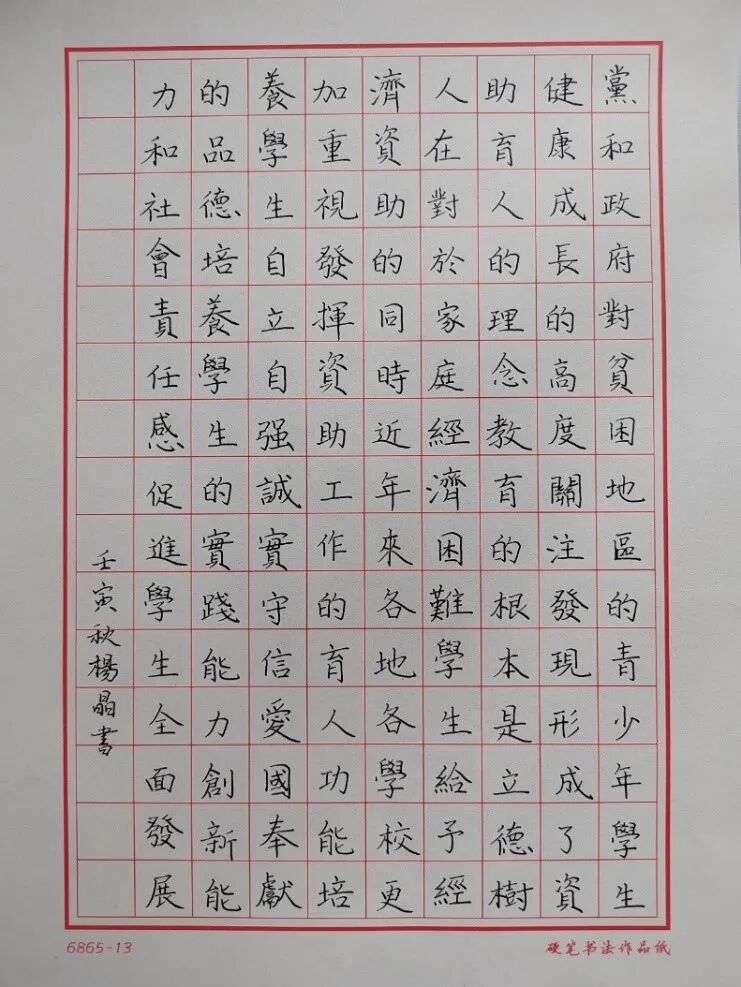 黨和政府對貧困地區的青少年學生
健康成長的高度關注發現形成了資
助育人的理念教育的根本是立德樹
人在對於家庭經濟困難學生給予經
濟資助的同時近年來各地各學校更
加重視發揮資助工作的育人功能培
養學生自立自强誠實守信愛國奉獻
的品德培養學生的實踐能力創新能
力和社會責任感促進學生全面發展
壬寅秋楊晶書
6865-13
硬笔书法作品纸